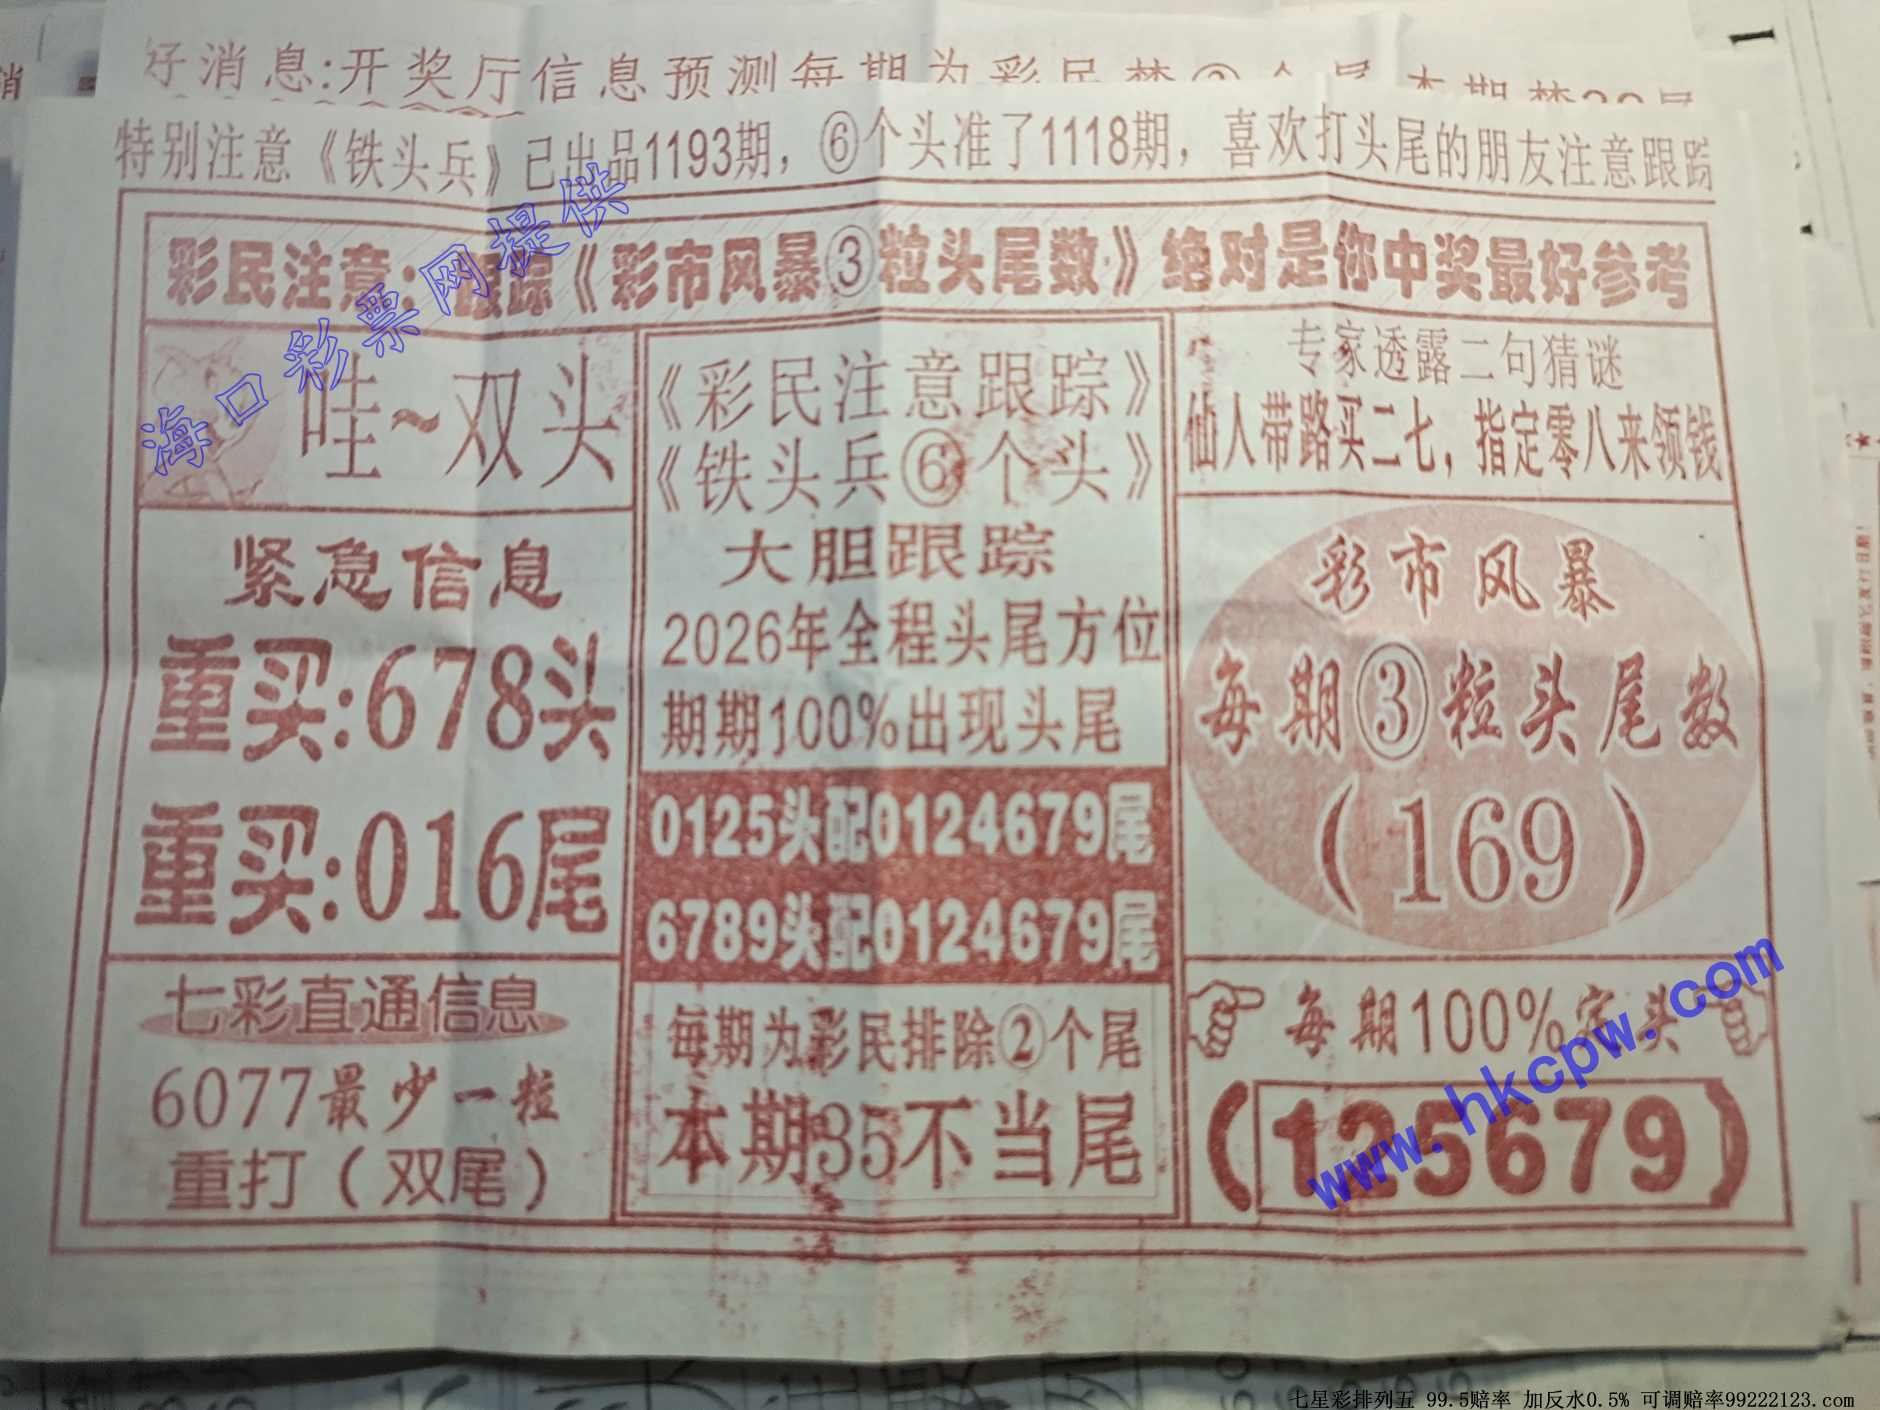 好消息:开奖厅信息预测每期为彩民禁②个尾 本期禁38尾
特别注意《铁头兵》已出品1193期，⑥个头准了1118期，喜欢打头尾的朋友注意跟踪
彩民注意：跟踪《彩市风暴③粒头尾数》绝对是你中奖最好参考
海口彩票网提供
哇~双头
紧急信息
重买:678头
重买:016尾
七彩直通信息
6077最少一粒
重打（双尾）
《彩民注意跟踪》
《铁头兵⑥个头》
大胆跟踪
2026年全程头尾方位
期期100%出现头尾
0125头配0124679尾
6789头配0124679尾
每期为彩民排除②个尾
本期35不当尾
专家透露二句猜谜
仙人带路买二七，指定零八来领钱
彩市风暴
每期③粒头尾数
（169）
每期100%定头
（125679）
www.hkcpw.com
七星彩排列五 99.5赔率 加反水0.5% 可调赔率99222123.com